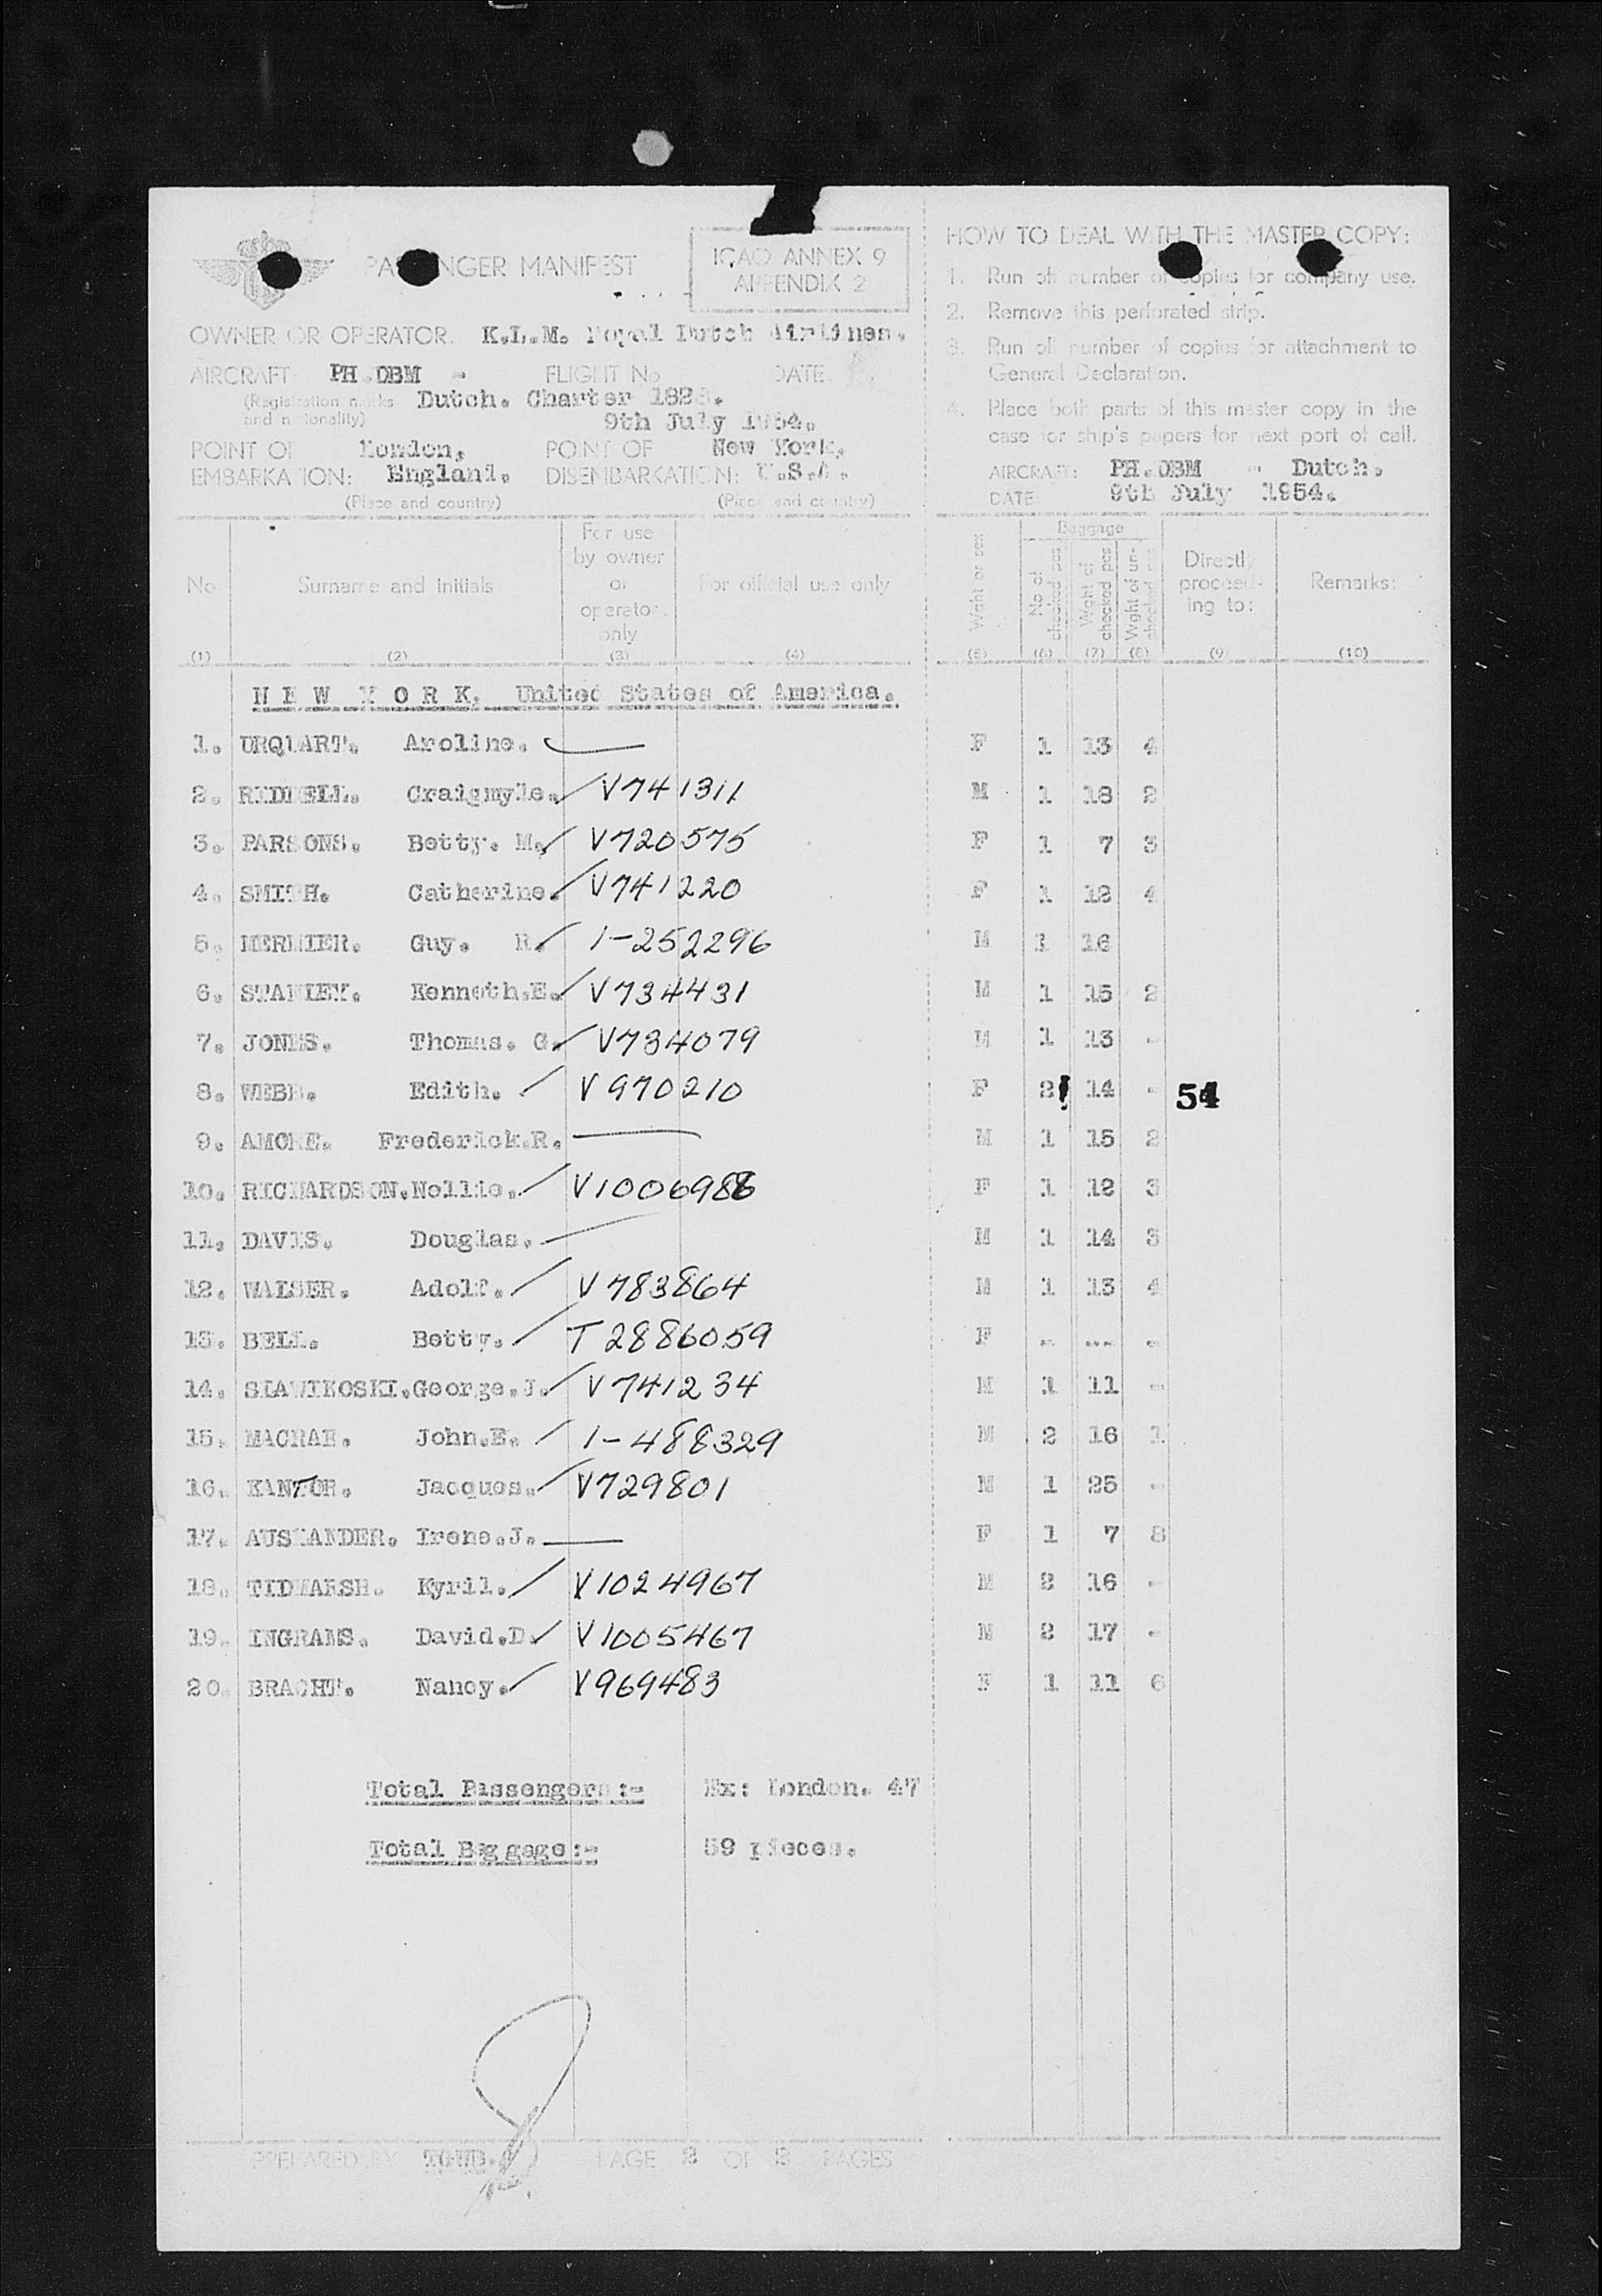 PASSENGER MANIFEST
ICAO ANNEX 9
APPENDIX 2
OWNER OR OPERATOR: K.L.M. Royal Dutch Airlines.
AIRCRAFT PH.DBM - FLIGHT No DATE
(Registration marks Dutch. Charter
and nationality) 9th July 1954.
POINT OF London, POINT OF New York,
EMBARKATION: England. DISEMBARKATION: U.S.A.
(Place and country) (Place and country)
HOW TO DEAL WITH THE MASTER COPY:
1. Run off number of copies for company use.
2. Remove this perforated strip.
3. Run off number of copies for attachment to
General Declaration.
4. Place both parts of this master copy in the
case for ship's papers for next port of call.
AIRCRAFT: PH.DBM - Dutch.
DATE 9th July 1954.
No Surname and initials For use by owner or operator only For official use only Wght or sex Baggage No of checked pcs Wght of checked pcs Wght of un-checked pcs Directly proceed-ing to: Remarks:
(1) (2) (3) (4) (5) (6) (7) (8) (9) (10)
N E W Y O R K. United States of America.
1. URQUART. Aroline. F 1 13 4
2. RIDDELL. Craigmyle. V741311 M 1 18 2
3. PARSONS. Betty. M. V720575 F 1 7 3
4. SMITH. Catherine. V741220 F 1 12 4
5. MERMIER. Guy. R. 1-252296 M 1 16
6. STANLEY. Kenneth.E. V734431 M 1 15 2
7. JONES. Thomas. G. V734079 M 1 13 -
8. WEBB. Edith. V970210 F 2 14 - 54
9. AMORE. Frederick.R. M 1 15 2
10. RICHARDSON. Nellie. V1006986 F 1 12 3
11. DAVIS. Douglas. M 1 14 3
12. WALSER. Adolf. V783864 M 1 13 4
13. BELL. Betty. T2886059 F - -- -
14. SLAWIKOSKI. George.J. V741234 M 1 11 -
15. MACRAE. John.E. 1-488329 M 2 16 1
16. KANTOR. Jacques. V729801 M 1 25 -
17. AUSLANDER. Irene.J. F 1 7 8
18. TIDMARSH. Kyril. V1024967 M 2 16 -
19. INGRAMS. David.D. V1005467 M 2 17 -
20. BRACHT. Nancy. V969483 F 1 11 6
Total Passengers:- Ex: London. 47
Total Baggage:- 59 pieces.
PREPARED BY PAGE 2 OF 2 PAGES